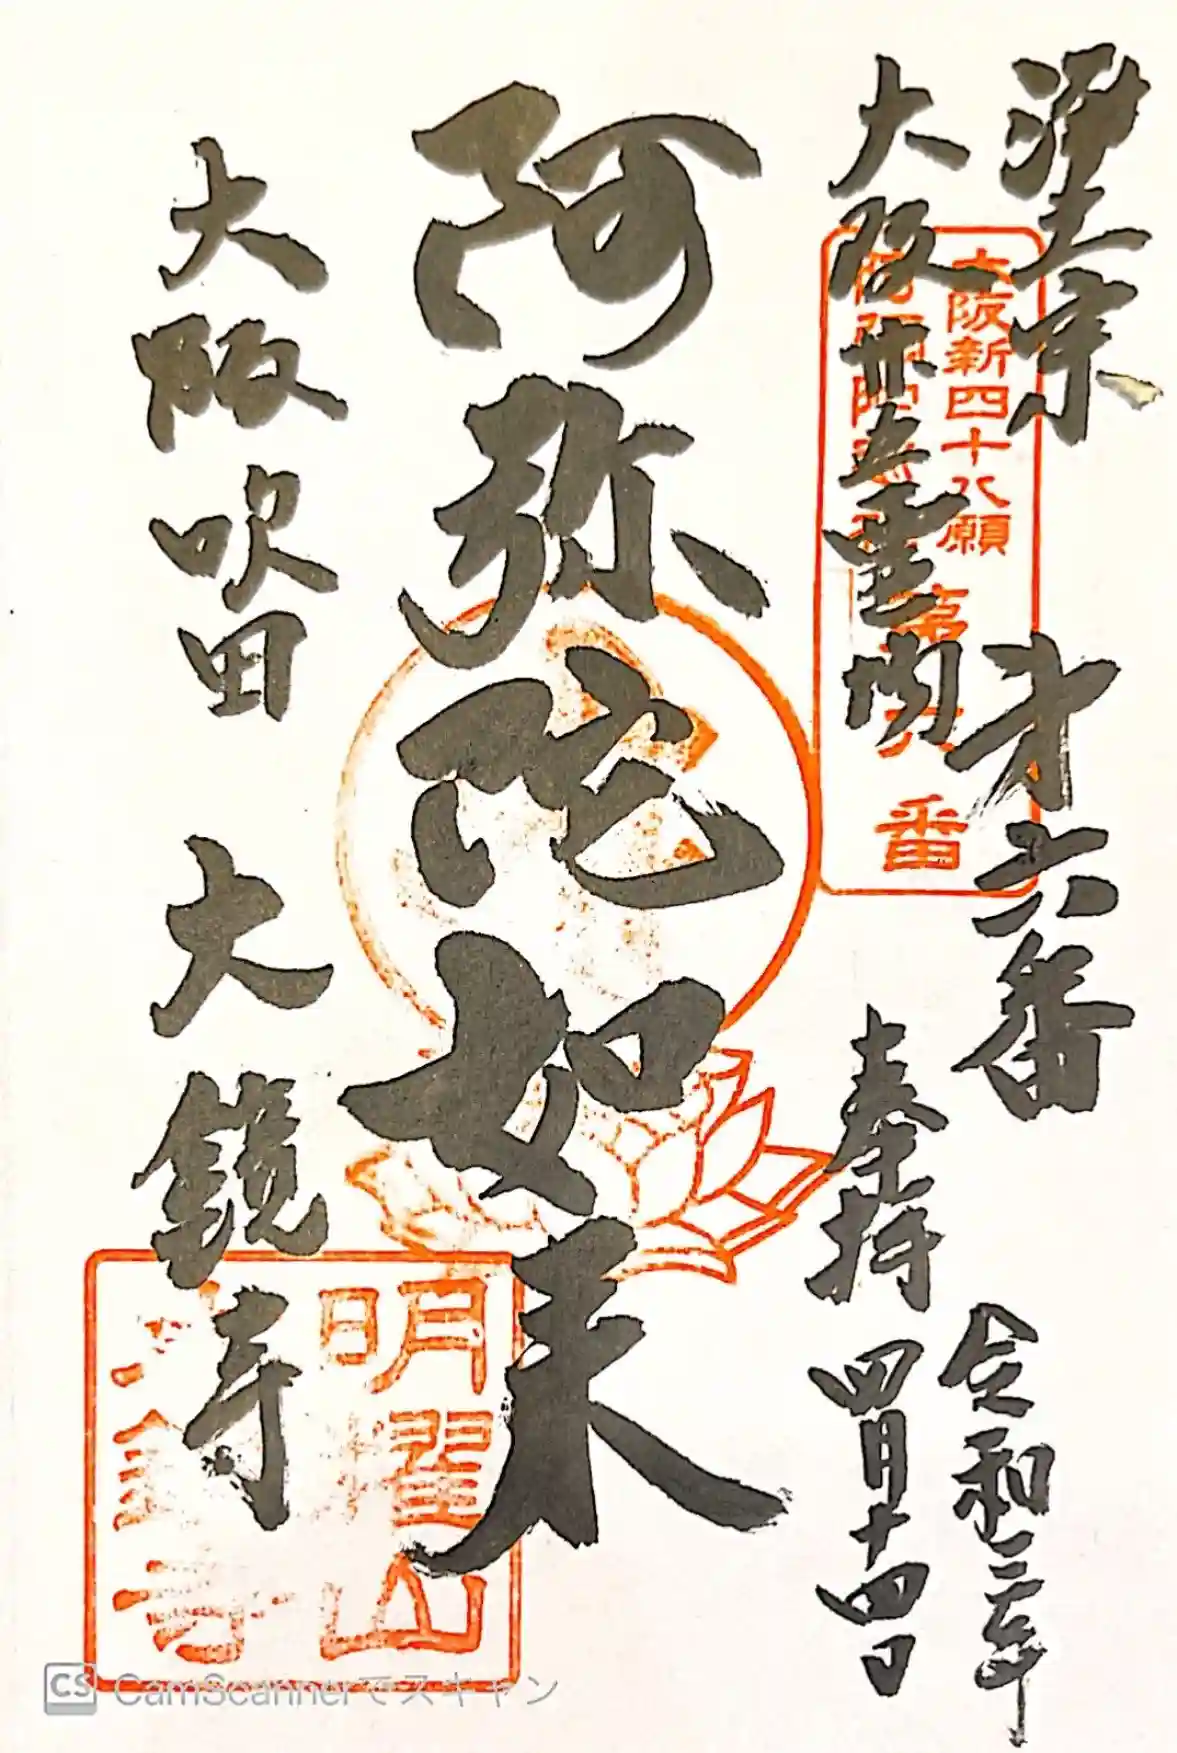 淨土宗 才六番 令和三年
大阪廿五霊場 奉拝 四月十四日
大阪新四十八願
第六番
阿弥陀如来
大阪吹田 大鏡寺
明耀山
大鏡寺
CS CamScannerでスキャン